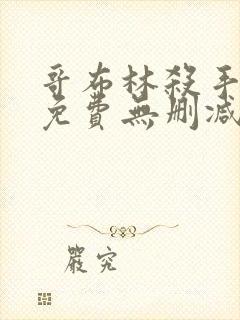 哥布林殺手
免費無刪減
嚴究